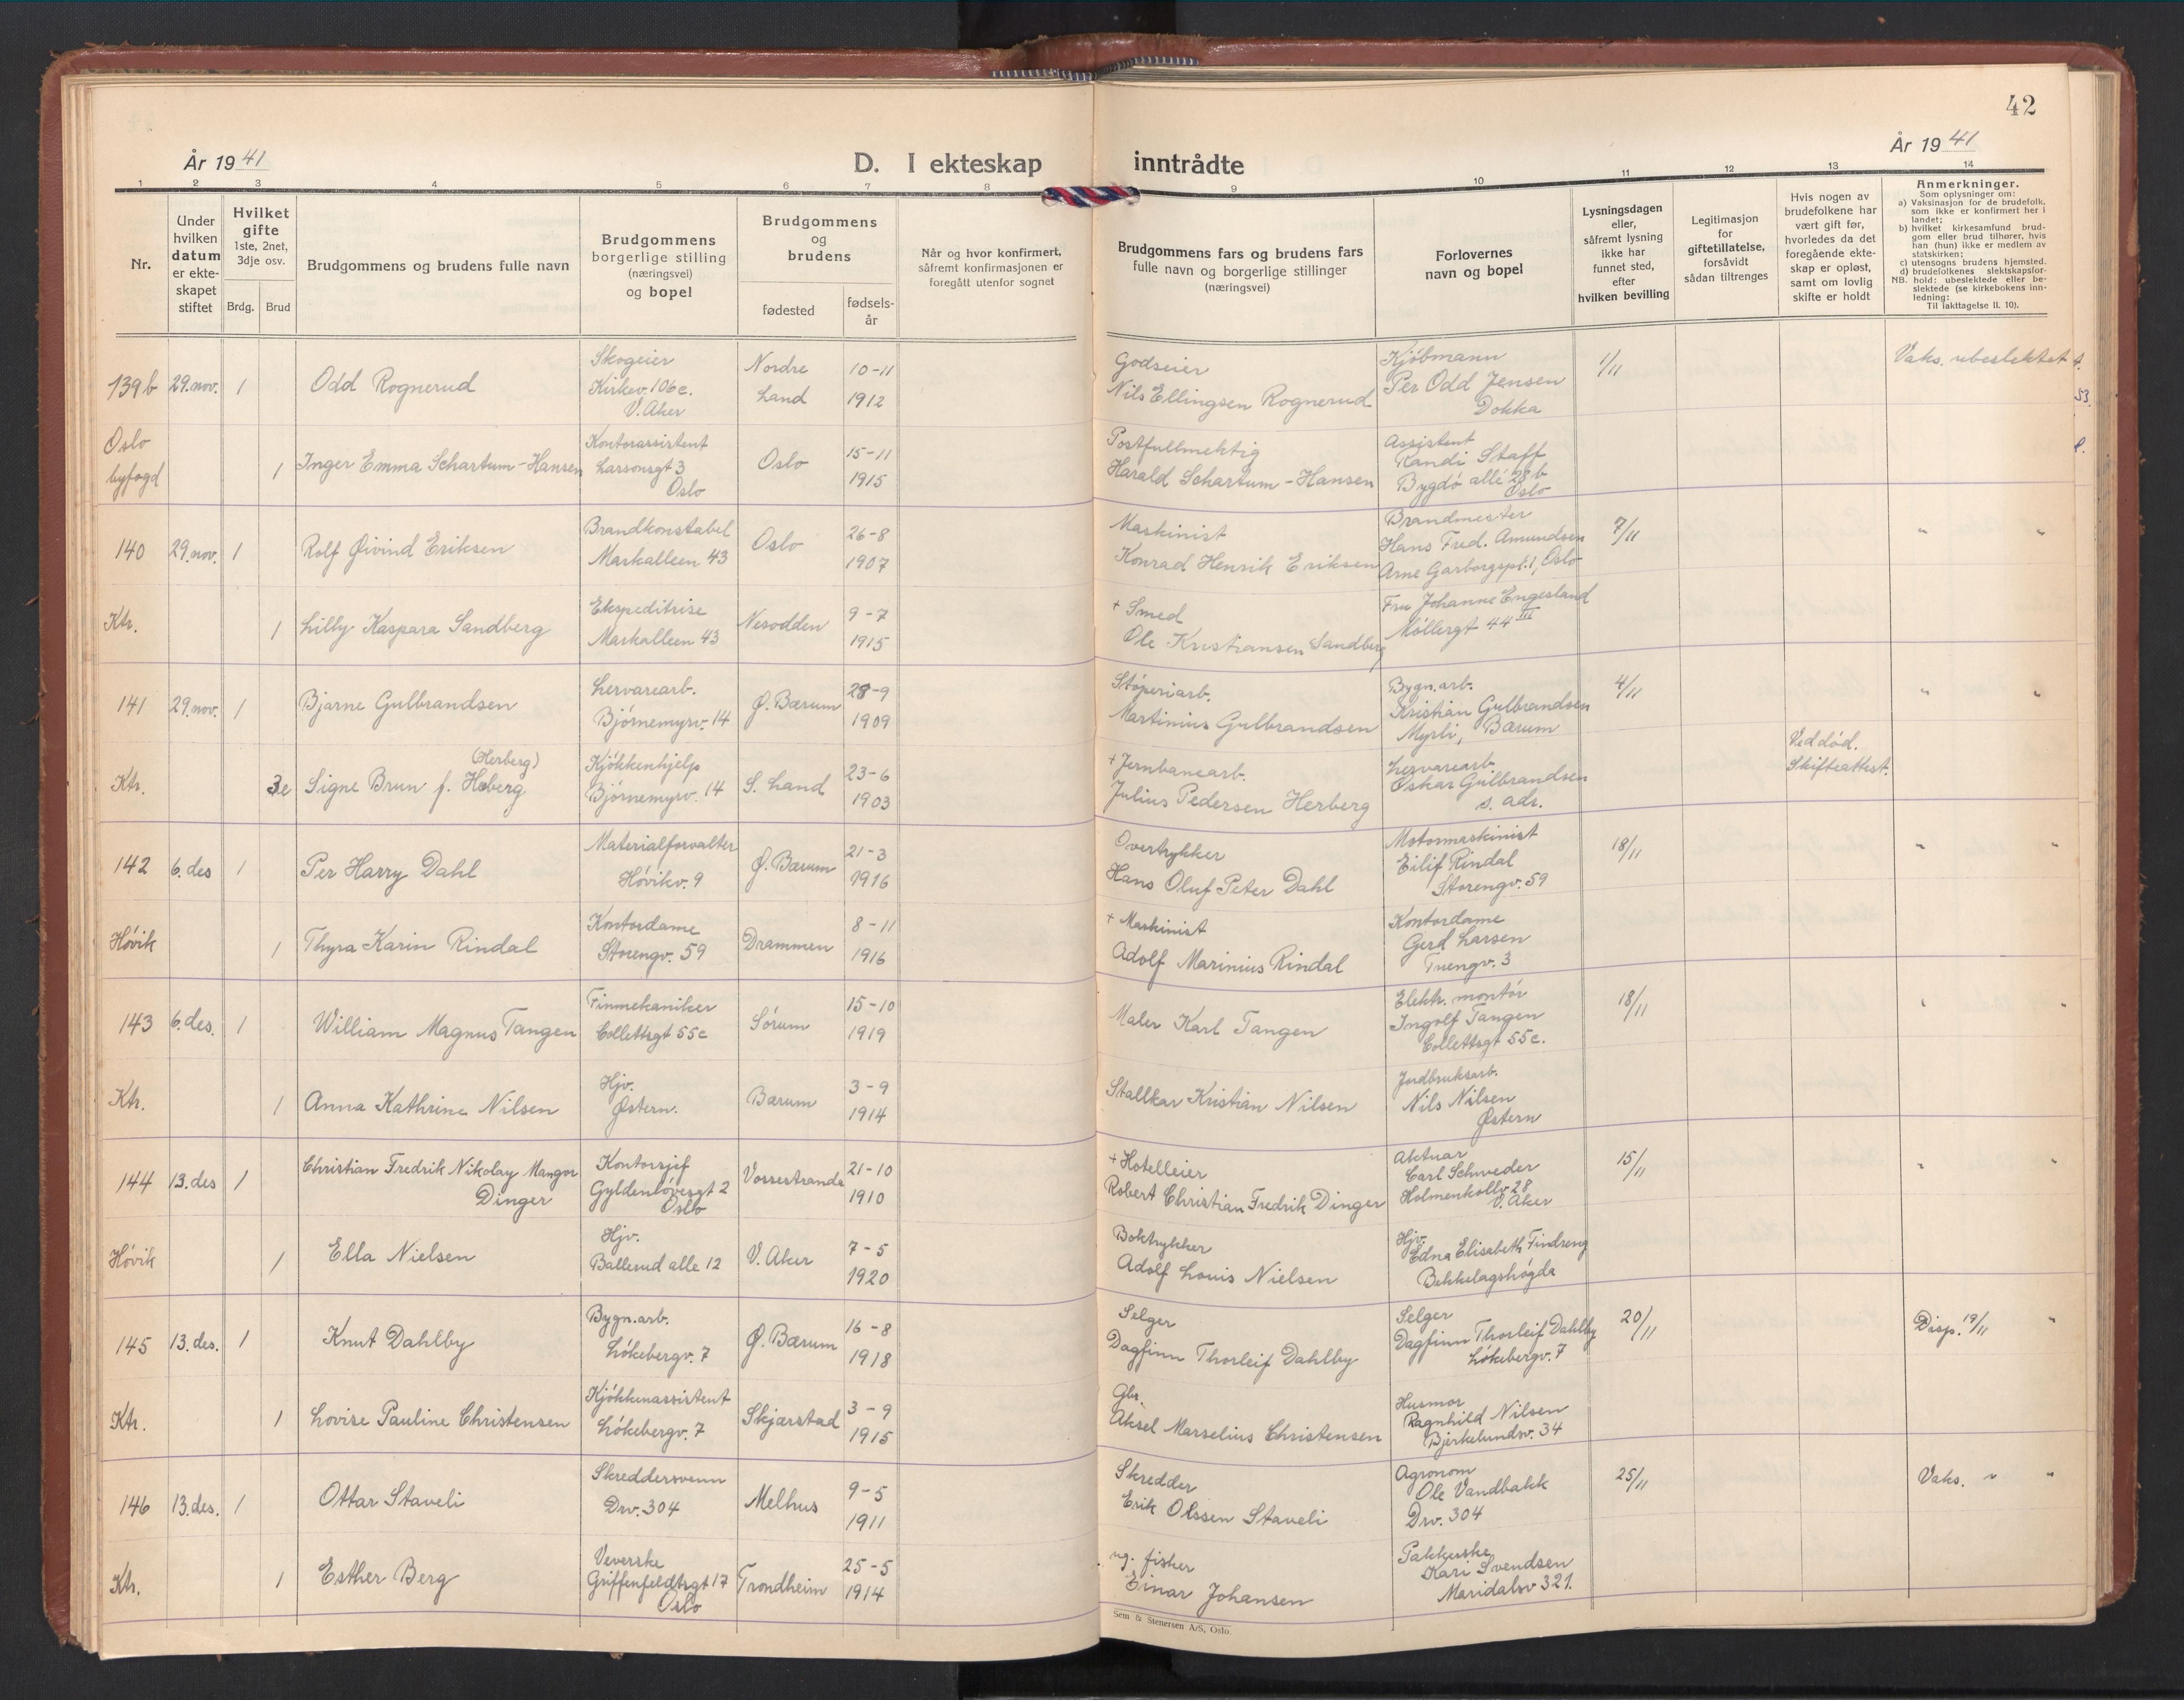 42
År 1941
D. I ekteskap inntrådte
År 1941
1 2 3 4 5 6 7 8 9 10 11 12 13 14
Nr.
Under hvilken datum er ekteskapet stiftet
Hvilket gifte
1ste, 2net, 3dje osv.
Brdg. Brud
Brudgommens og brudens fulle navn
Brudgommens borgerlige stilling (næringsvei) og bopel
Brudgommens og brudens
fødested
fødselsår
Når og hvor konfirmert, såfremt konfirmasjonen er foregått utenfor sognet
Brudgommens fars og brudens fars fulle navn og borgerlige stillinger (næringsvei)
Forlovernes navn og bopel
Lysningsdagen eller, såfremt lysning ikke har funnet sted, efter hvilken bevilling
Legitimasjon for giftetillatelse, forsåvidt sådan tiltrenges
Hvis nogen av brudefolkene har vært gift før, hvorledes da det foregående ekteskap er opløst, samt om lovlig skifte er holdt
Anmerkninger.
Som oplysninger om:
a) Vaksinasjon for de brudefolk, som ikke er konfirmert her i landet;
b) hvilket kirkesamfund brudgom eller brud tilhører, hvis han (hun) ikke er medlem av statskirken;
c) utensogns brudens hjemsted.
d) brudefolkenes slektskapsforhold: ubeslektede eller beslektede (se kirkebokens innledning:
NB. Til iakttagelse II. 10).
139b 29. nov. 1 Odd Rognerud
Skogeier
Kirkev. 106c.
V. Aker
Nordre Land
10-11
1912
Godseier
Nils Ellingsen Rognerud
Kjøbmann
Per Odd Jensen
Dokka
1/11
Vaks. ubeslektet
53.
Oslo byfogd
1 Inger Emma Schartum-Hansen
Kontorassistent
Larsonsgt 3
Oslo
Oslo
15-11
1915
Postfullmektig
Harald Schartum-Hansen
Assistent
Randi Staff
Bygdø allé 28b
Oslo
140 29. nov. 1 Rolf Øivind Eriksen
Brandkonstabel
Markalleen 43
Oslo
26-8
1907
Maskinist
Konrad Henrik Eriksen
Brandmester
Hans Fred. Amundsen
Arne Garborgspl. 1, Oslo
7/11
" "
Ktr.
1 Lilly Kaspara Sandberg
Ekspeditrise
Markalleen 43
Nesodden
9-7
1915
+ Smed
Ole Kristiansen Sandberg
Fru Johanne Engesland
Møllergt 44 III
141 29. nov. 1 Bjarne Gulbrandsen
Lervarearb.
Bjørnemyrv. 14
Ø. Bærum
28-9
1909
Støperiarb.
Martinius Gulbrandsen
Bygn. arb.
Kristian Gulbrandsen
Myrli, Bærum
4/11
" "
Ktr.
3e Signe Brun f. Heberg
(Herberg)
Kjøkkenhjelp
Bjørnemyrv. 14
S. Land
23-6
1903
+ Jernbanearb.
Julius Pedersen Herberg
Lervarearb
Oskar Gulbrandsen
s. adr.
Ved død.
Skifteattest.
142 6. des 1 Per Harry Dahl
Materialforvalter
Høvikv. 9
Ø. Bærum
21-3
1916
Overtrykker
Hans Oluf Peter Dahl
Motormaskinist
Eilif Rindal
Storengv. 59
18/11
" "
Høvik
1 Thyra Karin Rindal
Kontordame
Storengv. 59
Drammen
8-11
1916
+ Maskinist
Adolf Marinius Rindal
Kontordame
Gerd Larsen
Tuengv. 3
143 6. des. 1 William Magnus Tangen
Finmekaniker
Collettsgt 55c
Sørum
15-10
1919
Maler Karl Tangen
Elektr. montør
Ingolf Tangen
Collettsgt 55c.
18/11
" "
Ktr.
1 Anna Kathrine Nilsen
Hjv.
Østern.
Bærum
3-9
1914
Stallkar Kristian Nilsen
Jordbruksarb.
Nils Nilsen
Østern
144 13. des 1 Christian Fredrik Nikolay Mangor
Dinger
Kontorsjef
Gyldenløvesgt 2
Oslo
Vossestranda
21-10
1910
+ Hotelleier
Robert Christian Fredrik Dinger
Aktuar
Carl Schweder
Holmenkollv 28
V. Aker
15/11
" "
Høvik
1 Ella Nielsen
Hjv.
Ballerud alle 12
V. Aker
7-5
1920
Boktrykker
Adolf Louis Nielsen
Hjv.
Edna Elisabeth Findreng
Bekkelagshøgda
145 13. des. 1 Knut Dahlby
Bygn. arb.
Løkebergv. 7
Ø. Bærum
16-8
1918
Selger
Dagfinn Thorleif Dahlby
Selger
Dagfinn Thorleif Dahlby
Løkebergv. 7
20/11
Disp. 19/11 "
Ktr.
1 Lovise Pauline Christensen
Kjøkkenassistent
Løkebergv. 7
Skjærstad
3-9
1915
Gbr.
Aksel Marselius Christensen
Husmor
Ragnhild Nilsen
Bjerkelundsv. 34
146 13. des. 1 Ottar Staveli
Skreddersvenn
Drv. 304
Melhus
9-5
1911
Skredder
Erik Olssen Staveli
Agronom
Ole Vandbakk
Drv. 304
25/11
Vaks. " "
Ktr.
1 Esther Berg
Veverske
Griffenfeldtsgt 17
Oslo
Trondheim
25-5
1914
ug. fisker
Einar Johansen
Pakkerske
Kari Svendsen
Maridalsv 321.
Sem & Stenersen A/S, Oslo.